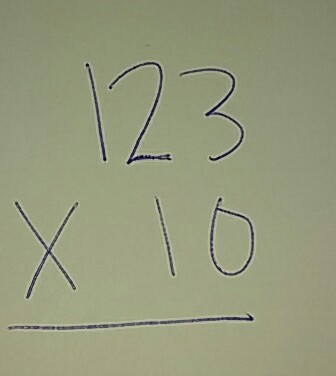 123
X 10